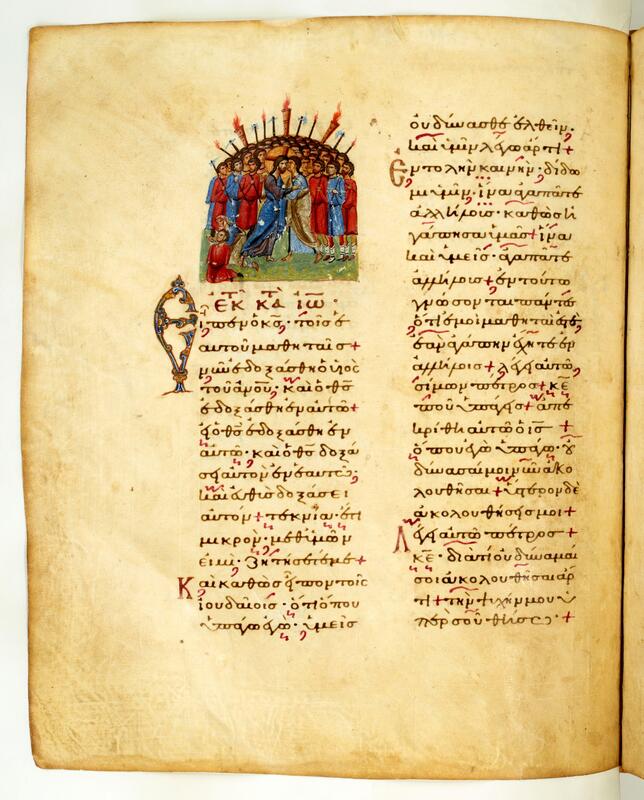 ἐκ τοῦ κατὰ Ἰω
Εἶπεν ὁ κς, τοῖς ἑ
αυτοῦ μαθηταῖς +
νῦν ἐδοξάσθη ὁ υἱος
τοῦ ἀνου· καὶ ὁ θς
ἐδοξάσθη ἐν αυτῶ +
εἰ ὁ θς ἐδοξάσθη ἐν
αυτῶ· καὶ ὁ θς δοξά
σει αυτὸν ἐν ἑαυτῶ·
καὶ ευθὺς δοξάσει
αυτόν + τεκνία· ἔτι
μικρὸν· μεθ ὑμῶν
εἰμι· ζητήσετέ με +
Καὶ καθὼς εἶπον τοῖς
ἰουδαίοις· ὅτι ὅπου
ὑπάγω ἐγω· ὑμεῖς
οὐ δύνασθε ἐλθεῖν·
καὶ ὑμῖν λέγω ἄρτι +
Ἐντολὴν καινὴν· δίδω
μι ὑμῖν· ἵνα ἀγαπᾶτε
ἀλλήλους· καθὼς ἠ
γάπησα ὑμας + ἵνα
καὶ ὑμεῖς· ἀγαπᾶτε
ἀλλήλους + ἐν τούτω
γνώσονται πάντες
ὅτι ἐμοὶ μαθηταί ἐστε,
ἐὰν ἀγάπην ἔχητε ἐν
ἀλλήλοις + λέγει αυτῶ,
σίμων πέτρος + κε
ποῦ ὑπάγεις + ἀπε
κρίθη αυτῶ ὁ ις +
ὅπου ἐγὼ ὑπάγω· οὐ
δύνασαί μοι νῦν ἀκο
λουθῆσαι + ὕστερον δὲ
ἀκολουθήσεις μοι +
Λέγει αυτῶ πέτρος +
κε· διατί οὐ δύναμαί
σοι ἀκολουθῆσαι ἄρ
τι + τὴν ψυχήν μου ὑ
πὲρ σοῦ θήσω· +